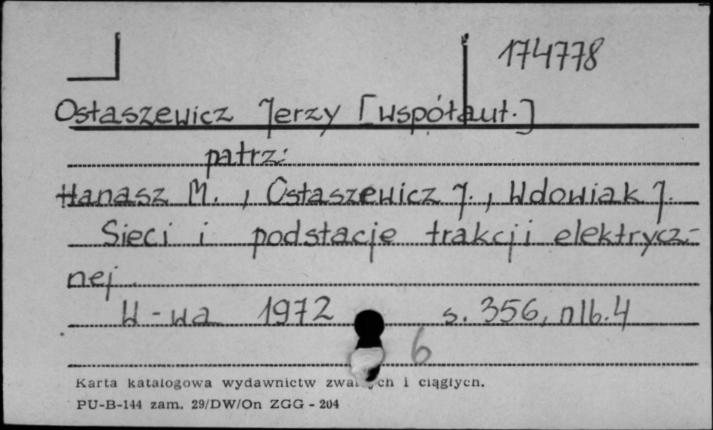 174778
Ostaszewicz Jerzy [współaut.]
patrz:
Hanasz M., Ostaszewicz J., Wdowiak J.
Sieci i podstacje trakcji elektrycz-
nej.
W-wa 1972 s. 356, nlb. 4
6
Karta katalogowa wydawnictw i ciągłych.
PU-B-144 zam. 29/DW/On ZGG - 204